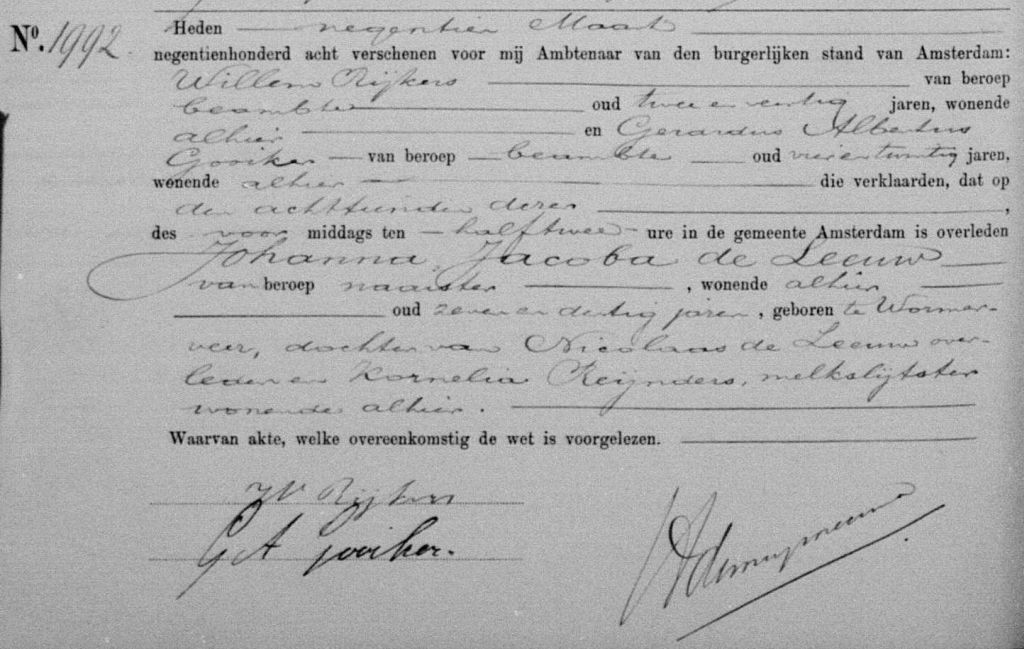 No. 1992. Heden negentien Maart
negentienhonderd acht verschenen voor mij Ambtenaar van den burgerlijken stand van Amsterdam:
Willem Rijkers van beroep
beambte oud twee en veertig jaren, wonende
alhier en Gerardus Albertus
Gooiker van beroep beambte oud vierentwintig jaren,
wonende alhier die verklaarden, dat op
den achttienden dezer,
des voor middags ten half twee ure in de gemeente Amsterdam is overleden
Johanna Jacoba de Leeuw
van beroep naaister, wonende alhier
oud zeven en dertig jaren, geboren te Wormer-
veer, dochter van Nicolaas de Leeuw over-
leden en Kornelia Reijnders, melkslijtster
wonende alhier.
Waarvan akte, welke overeenkomstig de wet is voorgelezen.
W Rijkers
G A Gooiker.